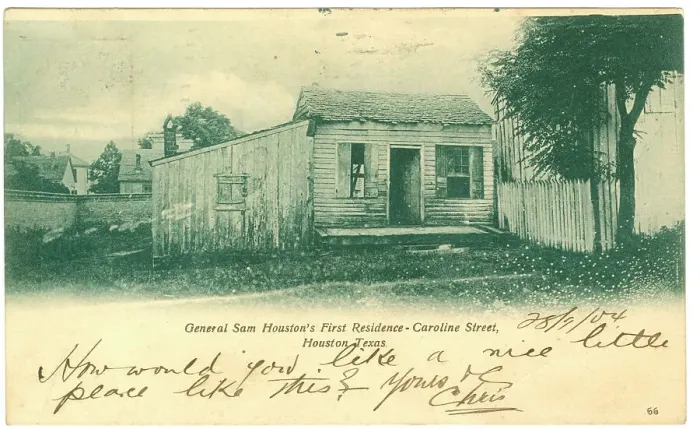 General Sam Houston's First Residence - Caroline Street,
Houston Texas.
28/9/04
How would you like a nice little
peace like this? Yours &c
Chris
66